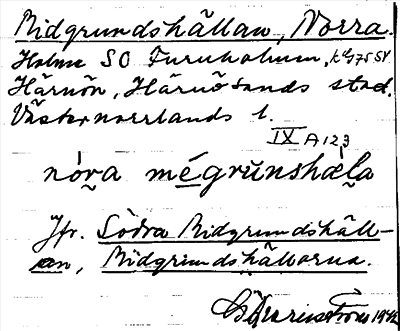 Midgrundshällan, Norra.
Holme SO Furuholmen,
Härnön, Härnösands stad.
Västernorrlands l.
IX A 123
nóra mégrŭnshæla
Jfr. Södra Midgrundshäll-
an, Midgrundshällorna.
1942